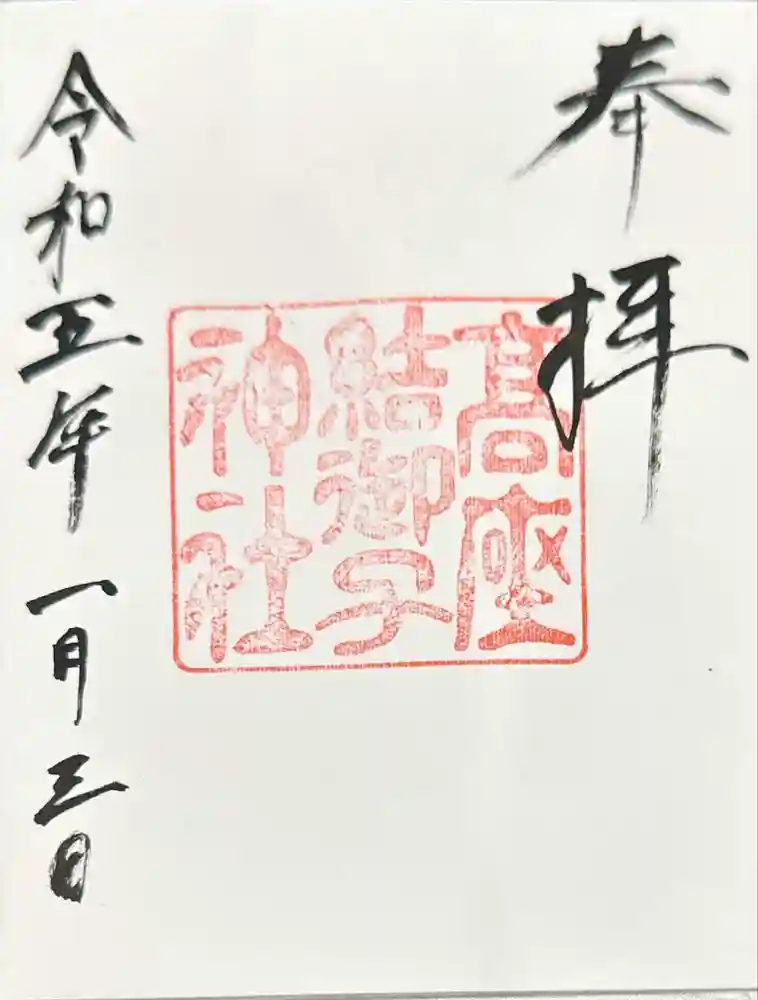 奉拝
高座
結御子
神社
令和五年一月三日